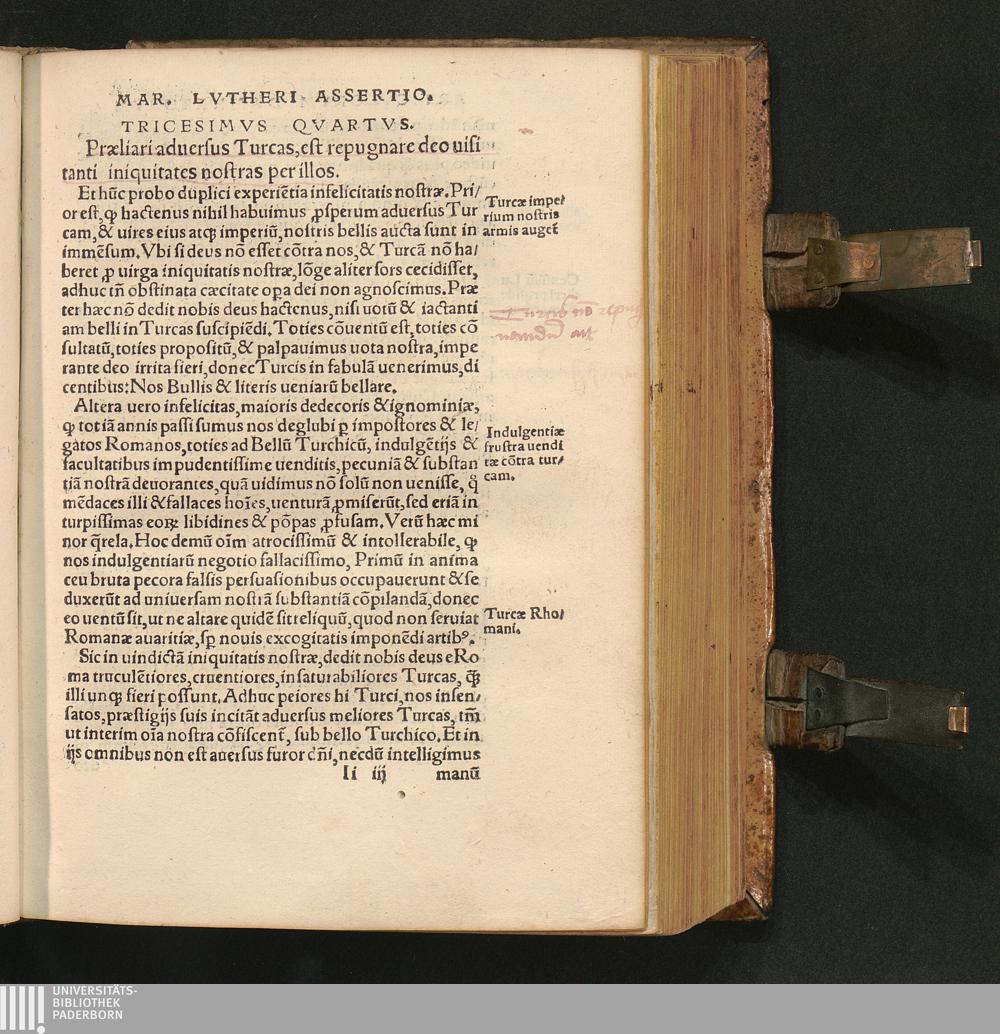 MAR. LVTHERI ASSERTIO.
TRICESIMVS QVARTVS.
Præliari aduersus Turcas, est repugnare deo uisi
tanti iniquitates nostras per illos.
Et hūc probo duplici experiētia infelicitatis nostræ. Pri/
or est, ꝙ hactenus nihil habuimus ꝓsperum aduersus Tur
cam, & uires eius atqꝫ imperiū, nostris bellis aucta sunt in
immēsum. Vbi si deus nō esset cōtra nos, & Turcā nō ha/
beret ꝓ uirga iniquitatis nostræ, lōge aliter sors cecidisset,
adhuc tñ obstinata cæcitate oꝑa dei non agnoscimus. Præ
ter hæc nō dedit nobis deus hactenus, nisi uotū & iactanti
am belli in Turcas suscipiēdi. Toties cōuentū est, toties cō
sultatū, toties propositū, & palpauimus uota nostra, impe
rante deo irrita fieri, donec Turcis in fabulā uenerimus, di
centibus: Nos Bullis & literis ueniarū bellare.
Altera uero infelicitas, maioris dedecoris & ignominiæ,
ꝙ totiā annis passi sumus nos deglubi ꝑ impostores & le/
gatos Romanos, toties ad Bellū Turchicū, indulgētijs &
facultatibus impudentissime uenditis, pecuniā & substan
tiā nostrā deuorantes, quā uidimus nō solū non uenisse, q̊
mēdaces illi & fallaces hoīes, uenturā ꝓmiserūt, sed etiā in
turpissimas eoꝝ libidines & pōpas ꝓfusam. Verū hæc mi
nor q̄rela. Hoc demū oīm atrocissimū & intollerabile, ꝙ
nos indulgentiarū negotio fallacissimo, Primū in anima
ceu bruta pecora falsis persuasionibus occupauerunt & se
duxerūt ad uniuersam nostrā substantiā cōpilandā, donec
eo uentū sit, ut ne altare quidē sit reliquū, quod non seruiat
Romanæ auaritiæ, sꝑ nouis excogitatis imponēdi artibꝰ.
Sic in uindictā iniquitatis nostræ, dedit nobis deus e Ro
ma truculētiores, cruentiores, insaturabiliores Turcas, q̄ꝫ
illi unqꝫ fieri possunt. Adhuc peiores hi Turci, nos insen/
satos, præstigijs suis incitāt aduersus meliores Turcas, tm̄
ut interim oīa nostra cōfiscent̄, sub bello Turchico. Et in
ijs omnibus non est auersus furor dñi, necdū intelligimus
Ii iij manū
Turcæ impe/
rium nostris
armis auget̄
Turcis nō repug
nandū
Indulgentiæ
frustra uendi
tæ cōtra tur/
cam.
Turcæ Rho/
mani.
UNIVERSITÄTS-
BIBLIOTHEK
PADERBORN